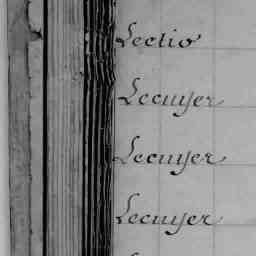 Lectio
Lecuyer
Lecuyer
Lecuyer